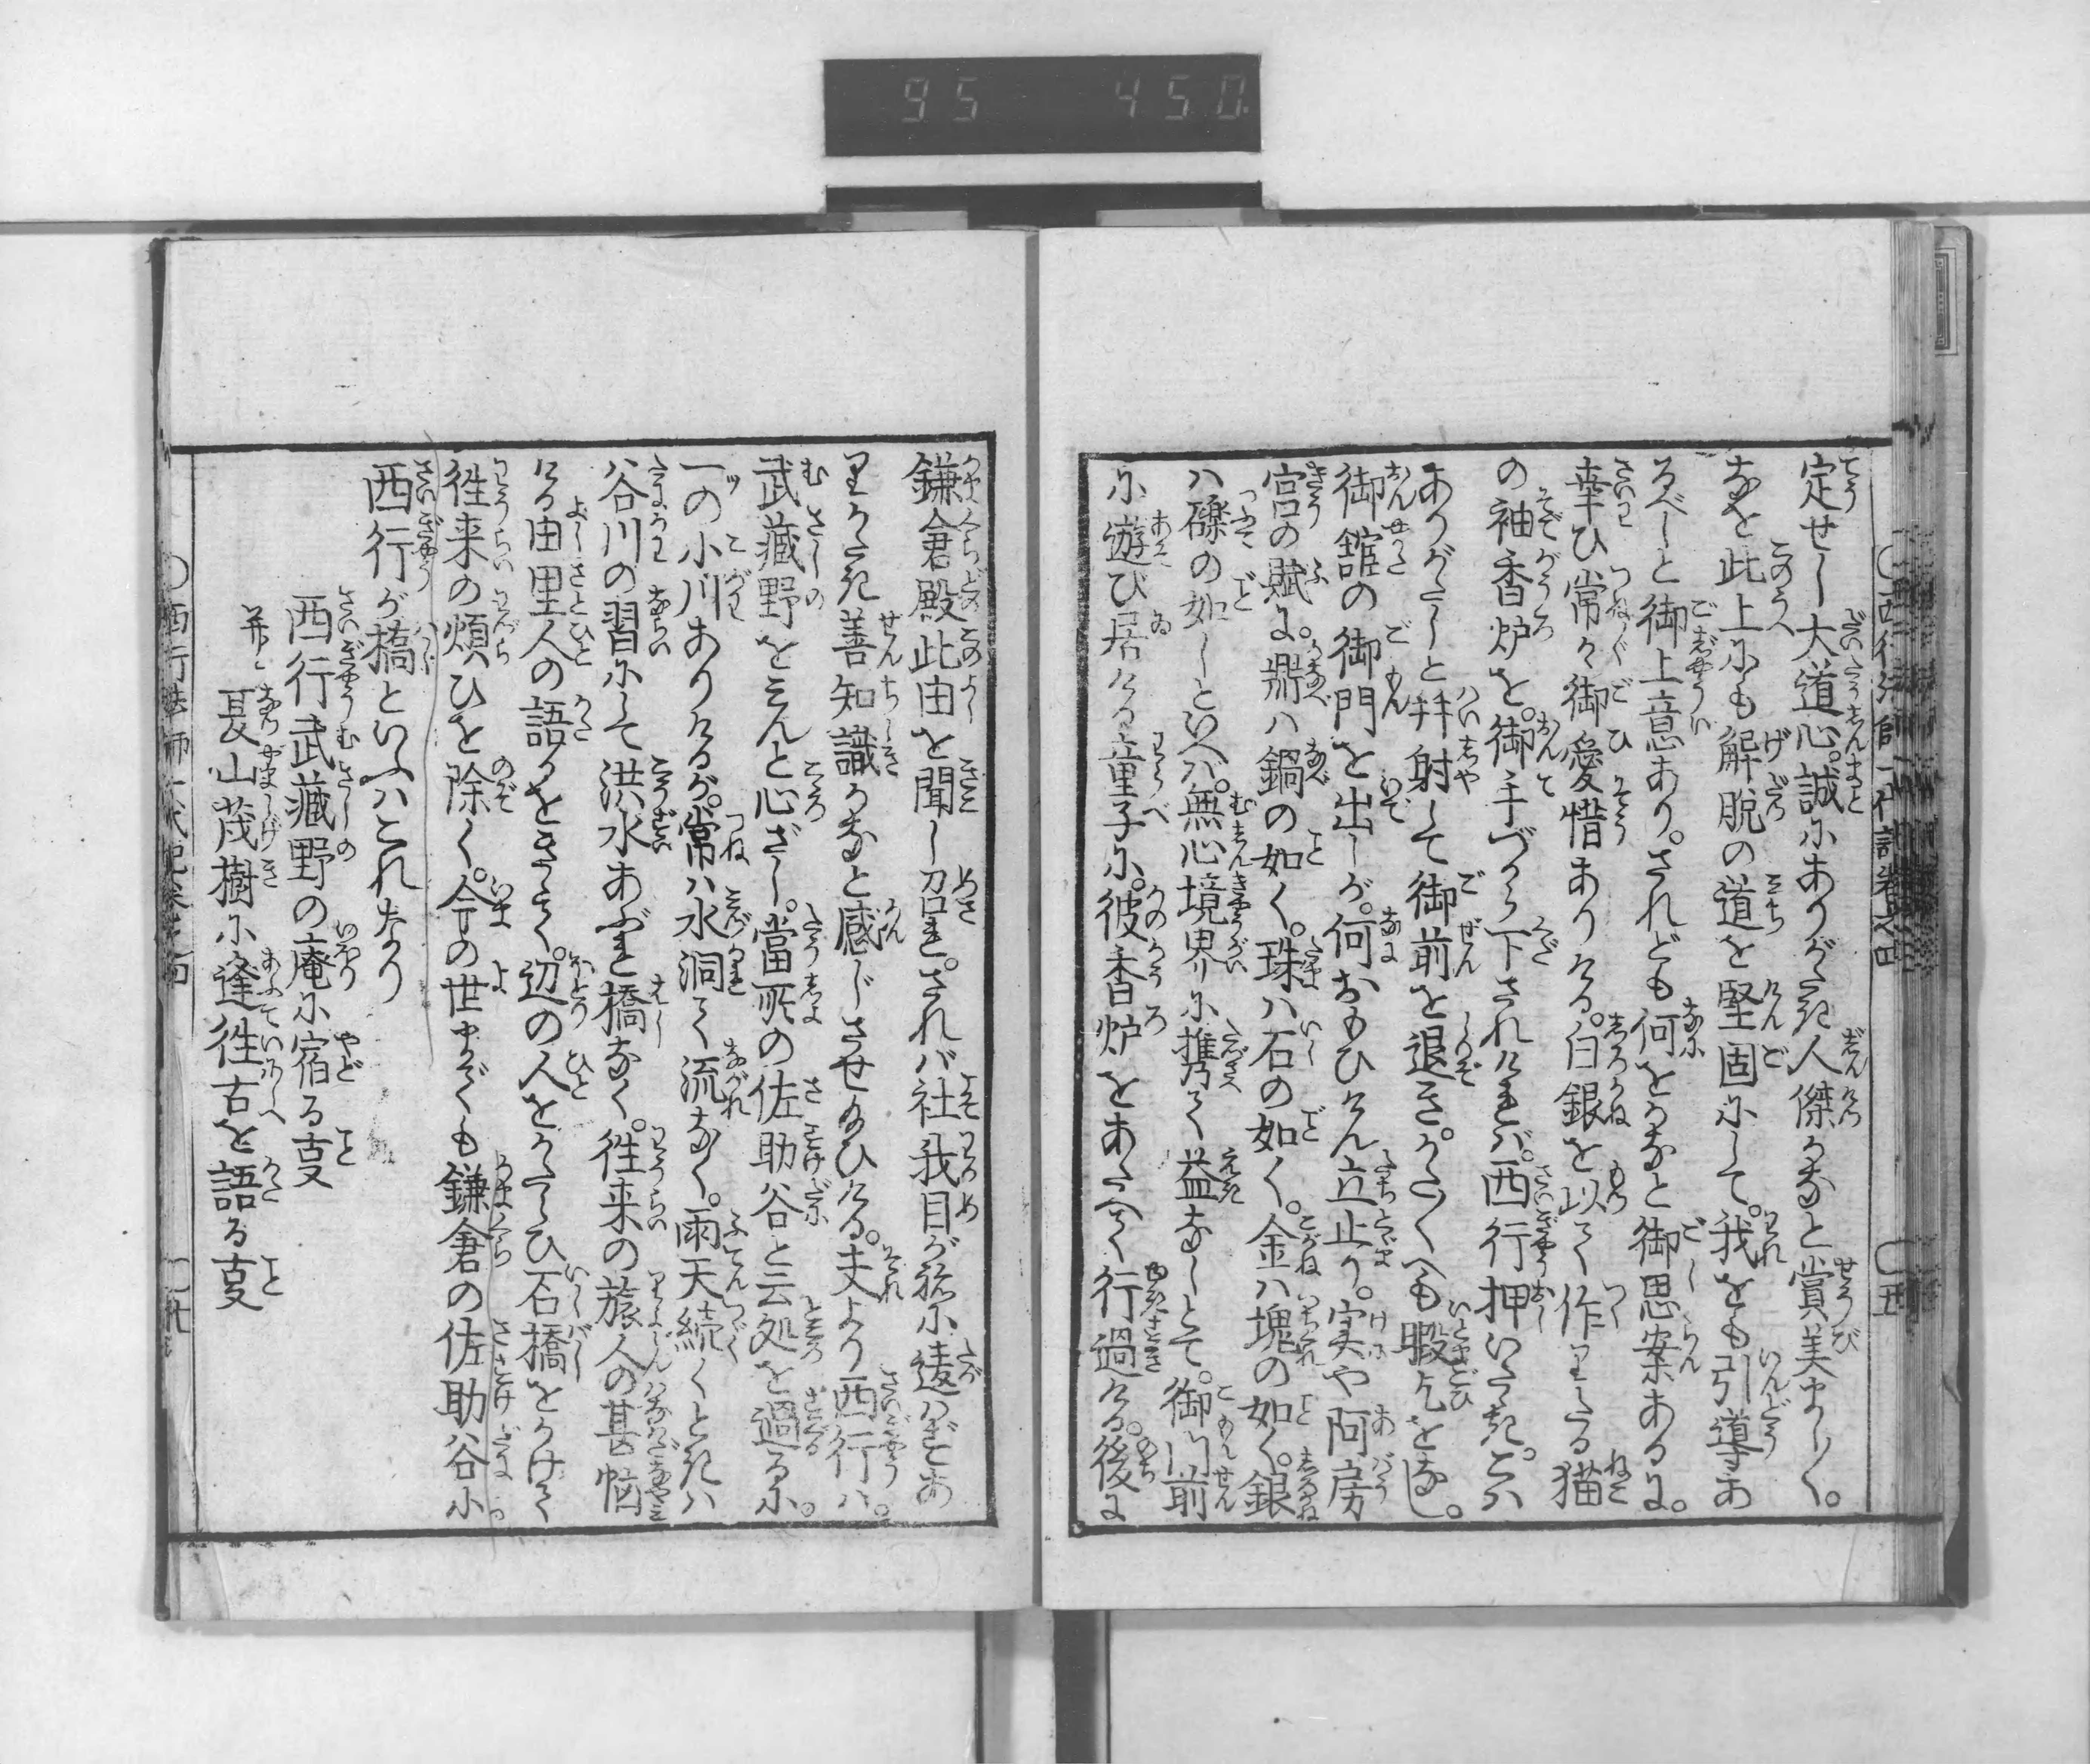 95 450
定せし大道心。誠にありがたき人傑かなと賞美まし〳〵。
なを此上にも解脱の道を堅固にして。我をも引導あ
るべしと御上意あり。されども何をかなと御思案あるに。
幸ひ常々御愛惜ありける。白銀を以て作りたる猫
の袖香炉を。御手づから下されければ。西行押いたゞき。こは
ありがたしと拝射して御前を退き。かた〴〵へも暇乞をなし。
御舘の御門を出しが。何おもひけん立止り。実や阿房
宮の賦に。鼎ハ鍋の如く。珠ハ石の如く。金ハ塊の如く。銀
ハ礫の如しといへバ。無心境界に携て益なしとて。御門前
に遊び居ける童子に。彼香炉をあたへて行過ける。後に
鎌倉殿此由を聞し召れ。されバ社我目が祢に違ハざあ
りけれ善知識かなと感じさせ給ひける。夫より西行ハ。
武蔵野をミんと心ざし。當所の佐助谷と云処を過るに。
一の小川ありけるが。常ハ水洞て流なく。雨天続くときハ
谷川の習にて洪水あふれ橋なく。往来の旅人の甚悩
ける由里人の語るをきゝて。辺の人をかたらひ石橋をかけて
往来の煩ひを除く。今の世までも鎌倉の佐助谷に
西行が橋といふハこれなり
西行武蔵野の庵に宿る事
并ニ 長山茂樹に逢往古を語る事
西行法師一代記巻之四